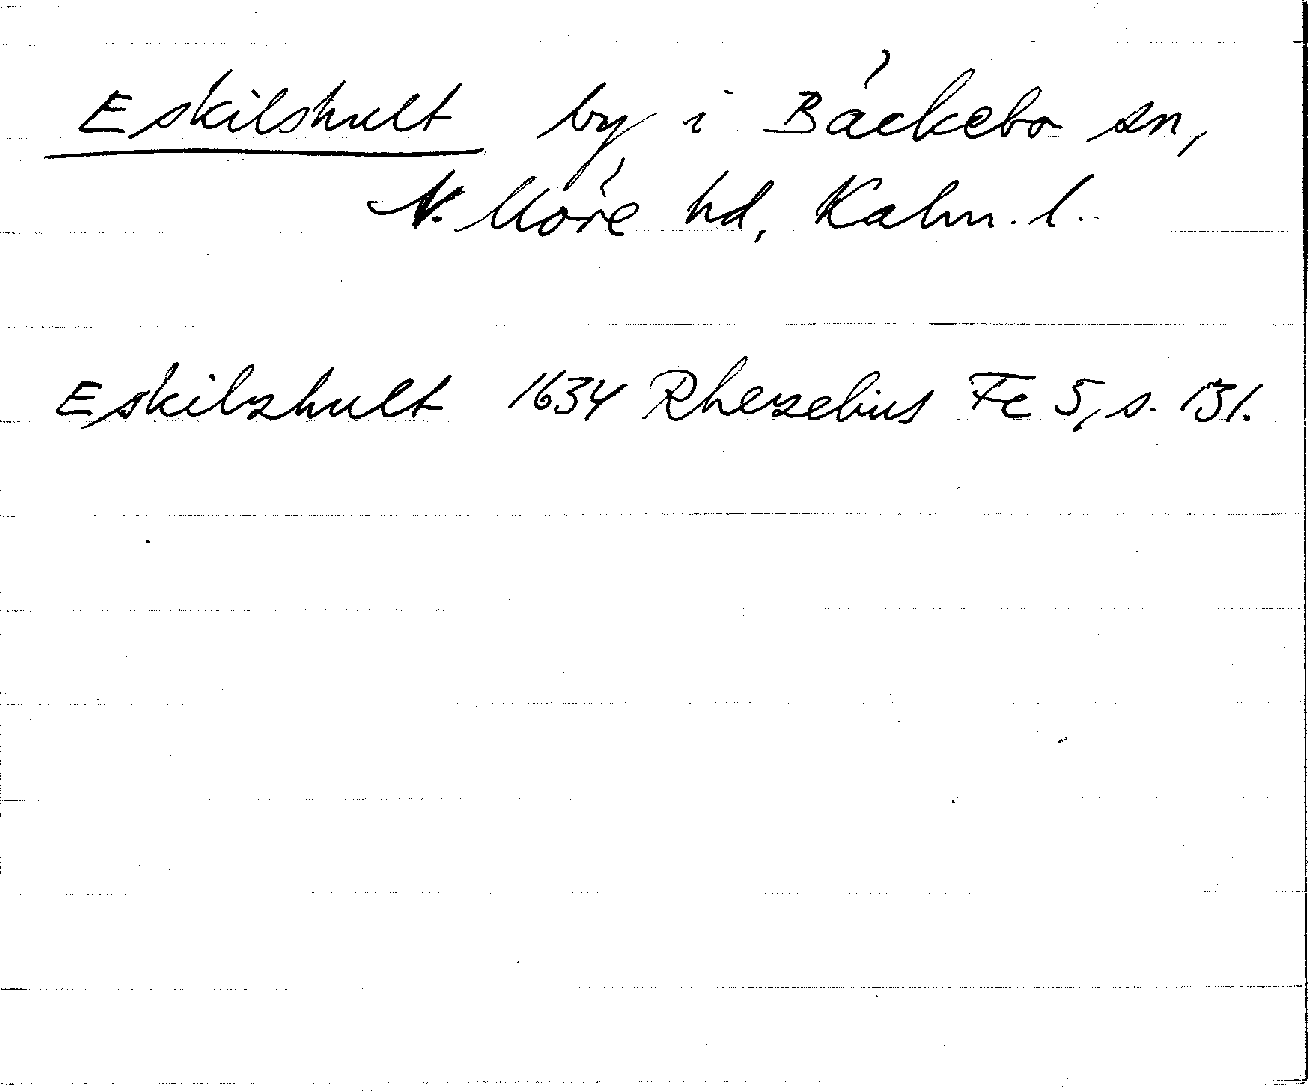 Eskilshult by i Bäckebo sn,
N. Möre hd, Kalm. l.
Eskilzhult 1634 Rhezelius Fc 5, s. 131.